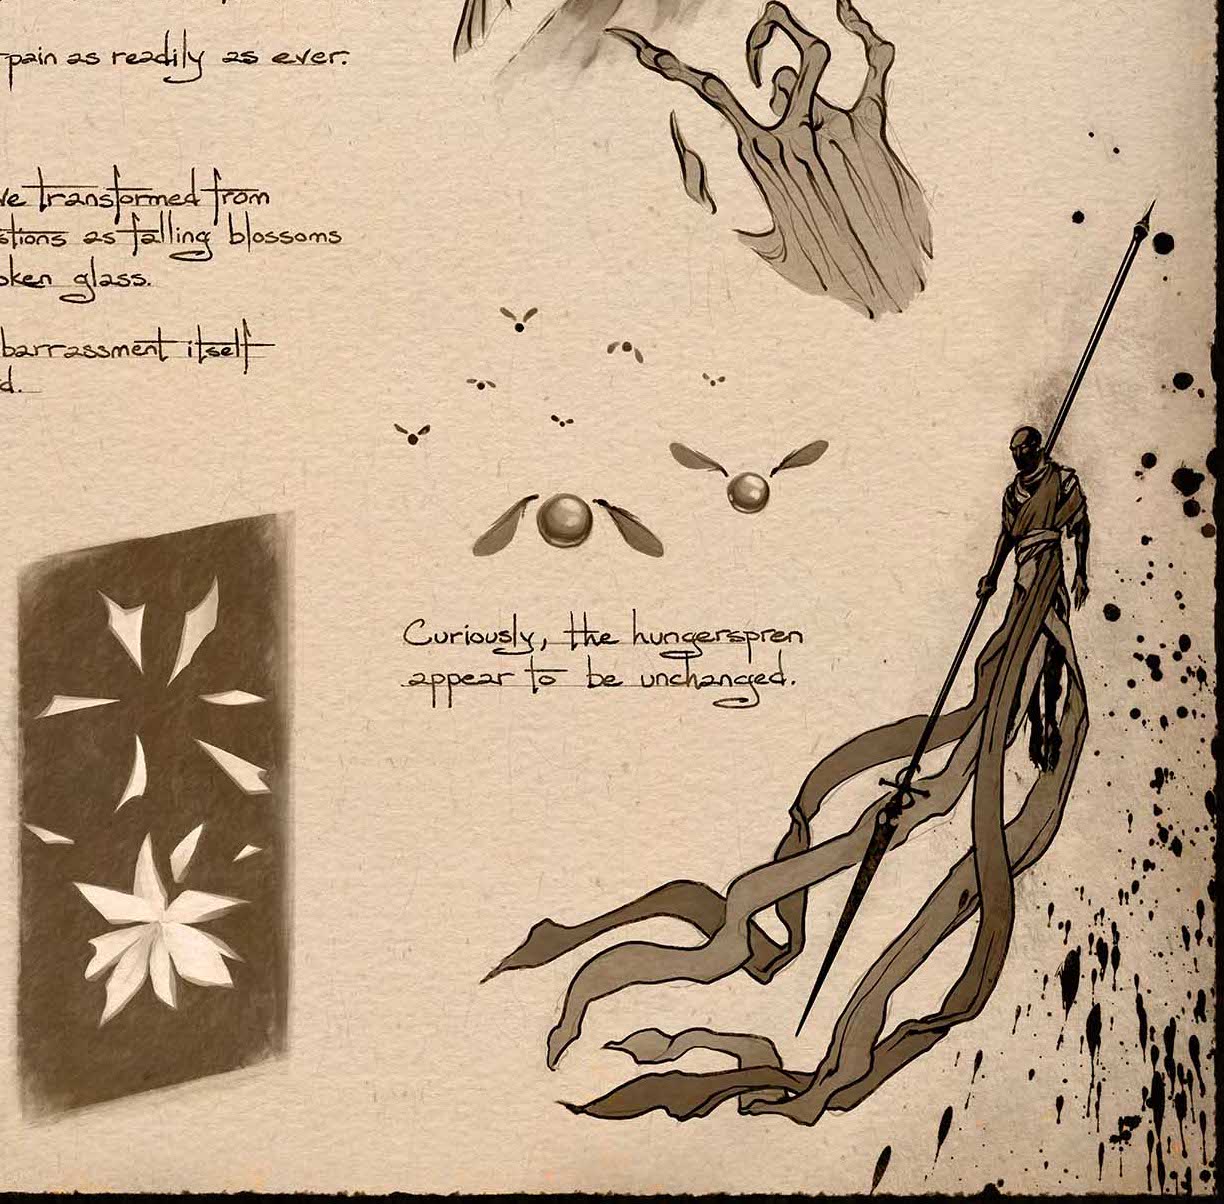 pain as readily as ever.
ve transformed from
stions as falling blossoms
oken glass.
barrassment itself
d.
Curiously, the hungerspren
appear to be unchanged.